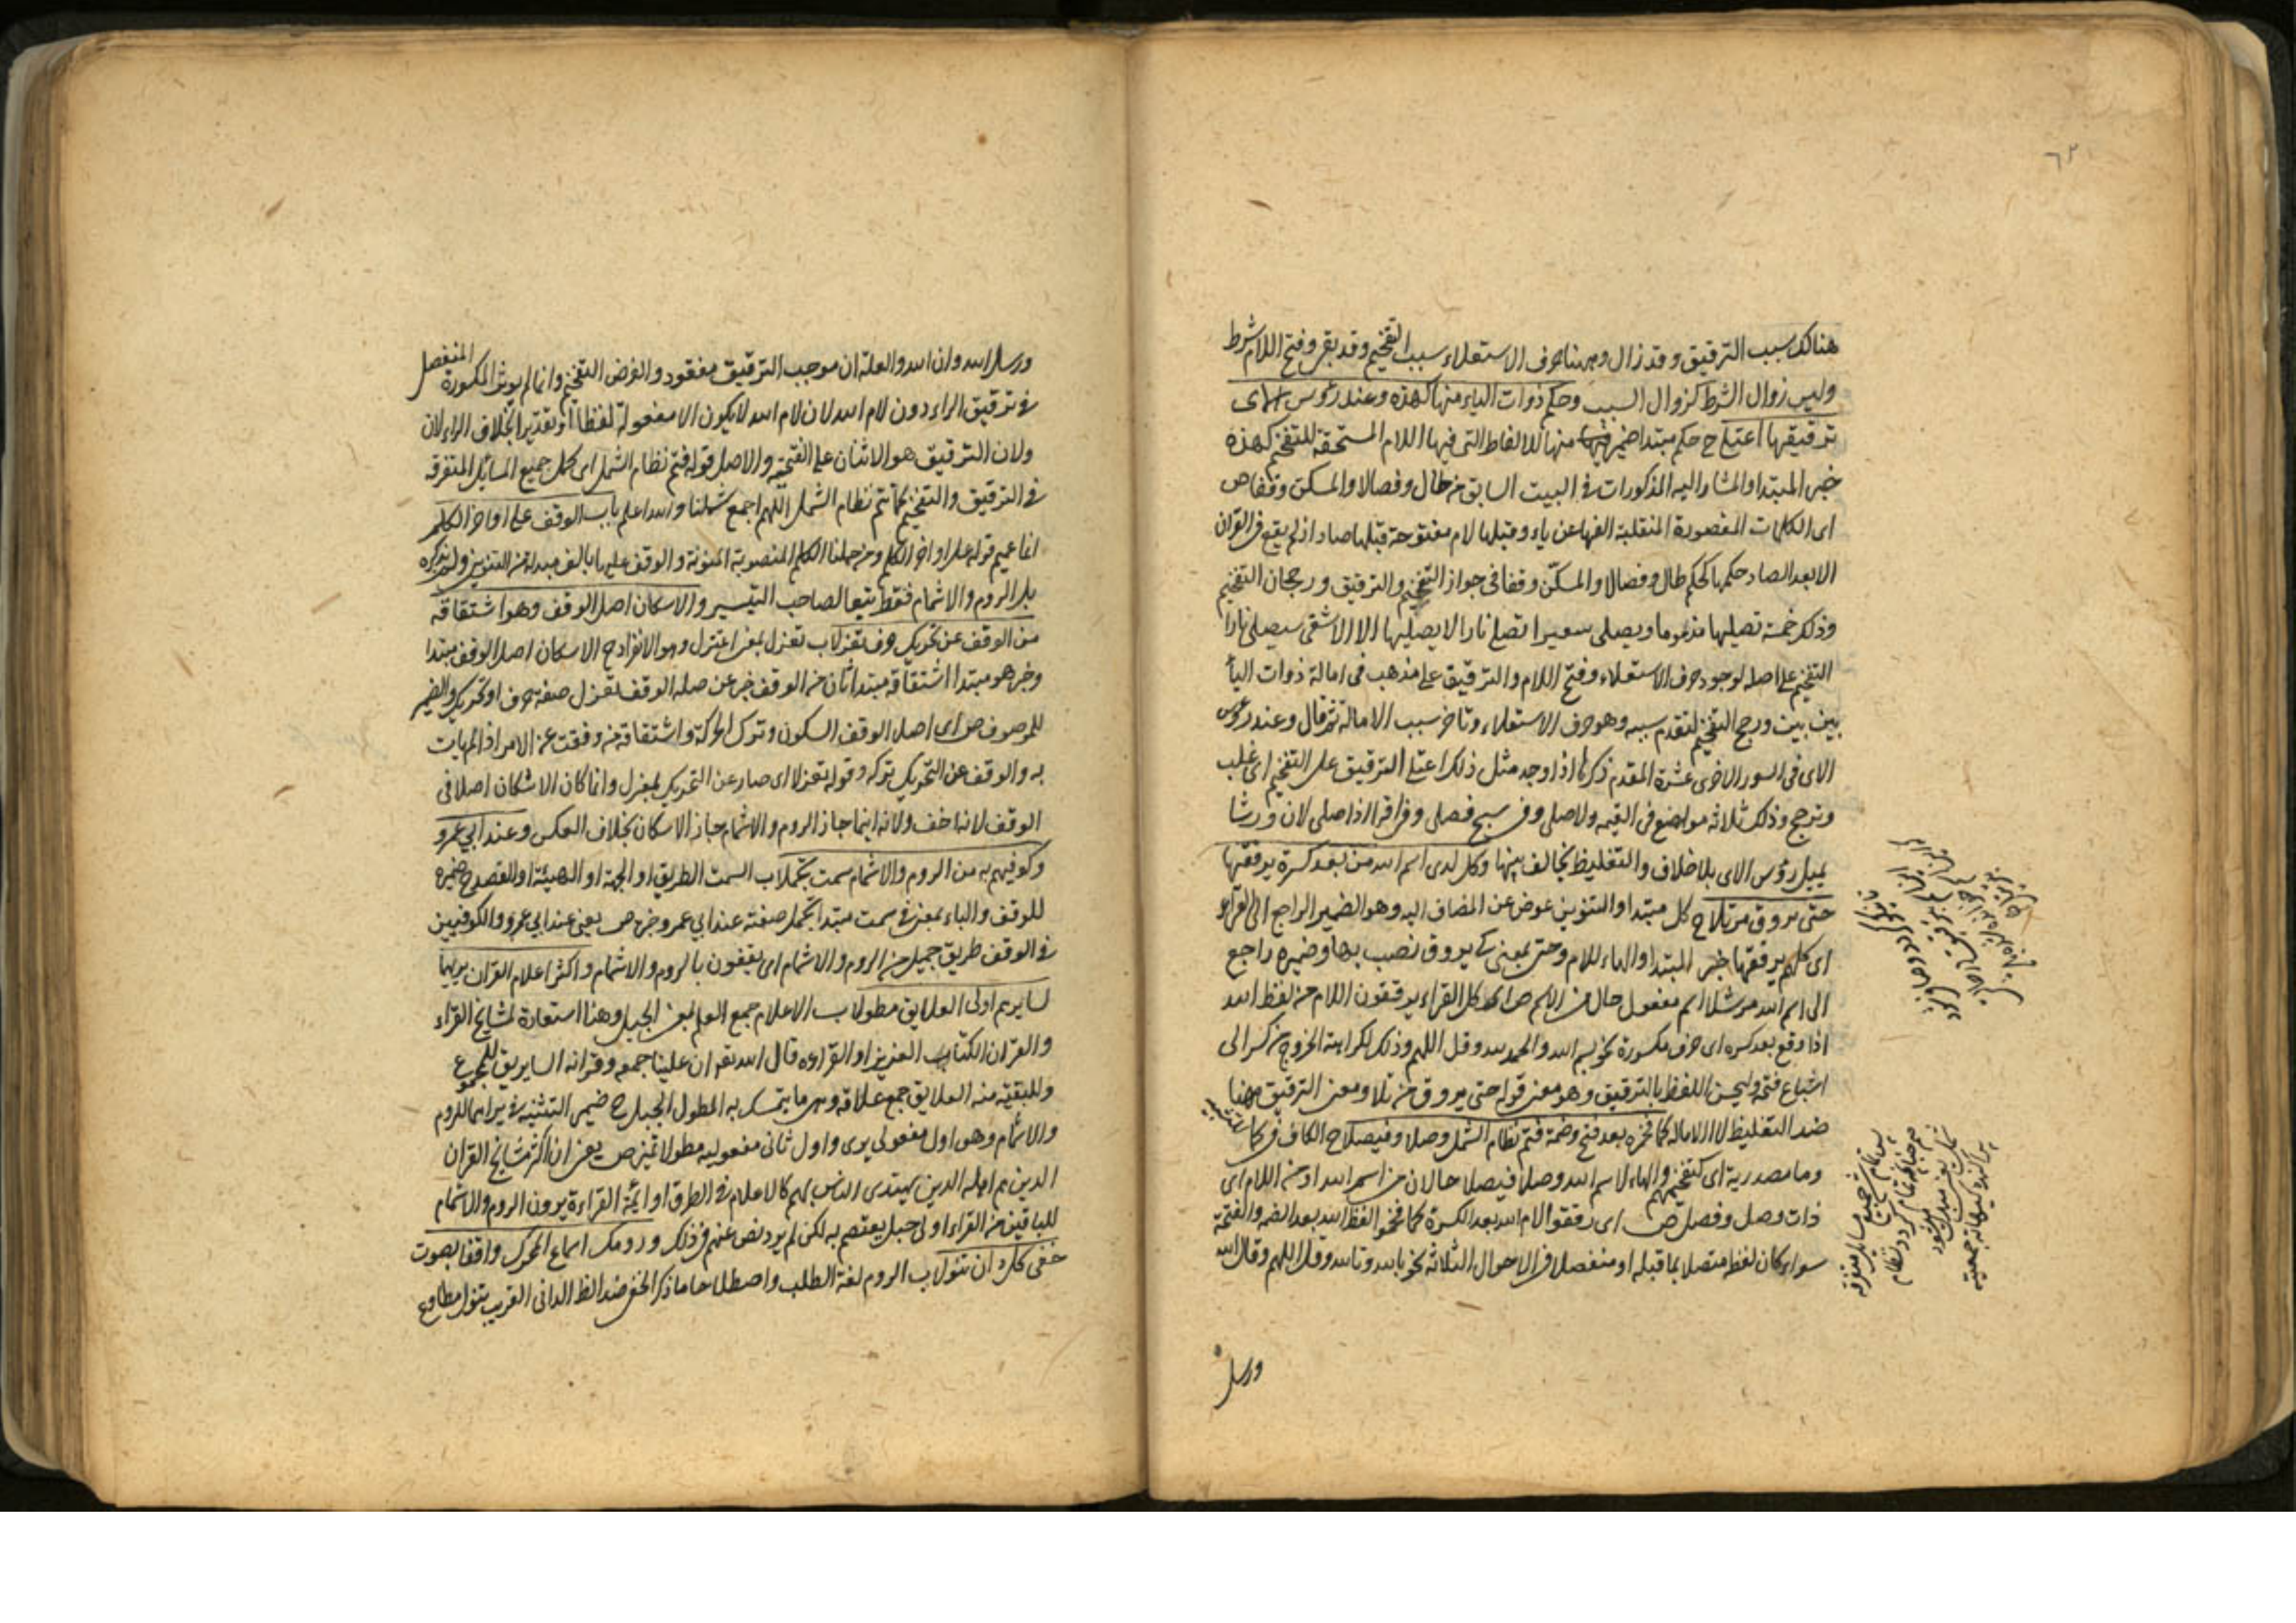 ٦٢
هنالك سبب الترقيق وقد زال وههنا حرف الاستعلاء سبب التفخيم وقد بقي وفتح اللام شرط
وليس زوال الشرط كزوال السبب وحكم ذوات الياء منها كهذه وعند رؤس الآى
ترقيقها اعتلا ح حكم مبتدا ضمير منها للالفاظ التى فيها اللام المستحقة للتفخيم كهذه
خبر المبتدا والمشار اليه المذكورات فى البيت السابق من طال وفصالا والمسكن وقفا ص
اى الكلمات المقصورة المنقلبة الفها عن ياء وقبلها لام مفتوحة قبلها صاد اذ لم يقع فى القران
الا بعد الصاد حكمها كحكم طال وفصالا والمسكن وقفا فى جواز التفخيم والترقيق ورجحان التفخيم
وذلك خمسة تصليها مذموما ويصلى سعيرا تصلى نارا لا يصليها الا الاشقى سيصلى نارا
التفخيم على اصله لوجود حرف الاستعلاء وفتح اللام والترقيق على مذهب فى امالة ذوات اليا
بين بين ورجح التفخيم لتقدم سببه وهو حرف الاستعلاء وتاخر سبب الامالة ثم قال وعند رؤس
الاى فى السور الاخرى عشرة المقدم ذكرها اذا وجد مثل ذلك اعتلى الترقيق على التفخيم اى غلب
وترجح وذلك ثلاثه مواضع فى القيمه ولا صلى وفى سبح فصلى وفى اقرا اذا صلى لان ورشا
يميل رؤس الاى بلا خلاف والتغليظ يخالف بينها وكل لدى اسم الله من بعد كسرة يرققها
حتى يروق مرتلا ح كل مبتدا والتنوين عوض عن المضاف اليه وهو الضمير الراجع الى القراء
اى كلهم يرققها خبر المبتدا والهاء للام وحتى بمعنى كى يروق نصب بها وضميره راجع
الى اسم الله مرتلا اسم مفعول حال من الاسم ص اى كل القراء يرققون اللام من لفظ الله
اذا وقع بعد كسره اى حرف مكسورة نحو بسم الله والحمد لله وقل اللهم وذلك لكراهة الخروج من كسر الى
اشباع فتحه وليحسن اللفظ بالترقيق وهو معنى قوله حتى يروق مرتلا ومعنى الترقيق ههنا
ضد التغليظ لا الاماله كما فخموه بعد فتح وضمة فتم نظام الشمل وصلا وفيصلا ح الكاف فى كما
وما مصدرية اى كتفخيمهم والهاء لاسم الله وصلا فيصلا حالان من اسم الله او من اللام اى
ذات وصل وفصل ص اى رققوا لام الله بعد الكسرة كما فخموا لفظ الله بعد الضمه والفتحة
سواء كان لفظ متصلا بما قبله او منفصلا فى الاحوال الثلاثة نحو بالله وتالله وقل اللهم وقال الله
ورسل
ورسل الله وان الله والعلة ان موجب الترقيق مفقود والغرض التفخيم وانما لم يوثر المكسورة المنفصل
فى ترقيق الراء دون لام الله لان لام الله لا يكون الا مفعولة لفظا او تقديرا بخلاف الراء لان
ولان الترقيق هو الاتيان على الفتحة والاصل قوله فتم نظام الشمل اى كمل جميع المسائل المتفرقه
فى الترقيق والتفخيم كما تم نظام الشمل اللهم اجمع شملنا والله اعلم باب الوقف على اواخر الكلم
انما عمم قوله على اواخر الكلم ومن جملتها الكلم المنصوبة المنونة والوقف عليها بالف مبدلة من التنوين ولم يذكره
بل الروم والاشمام فقط تبعا لصاحب التيسير والاسكان اصل الوقف وهو اشتقاقه
من الوقف عن تحريك حرف تعزلا ب تعزل بمعنى اعتزل وهو الانفراد ح الاسكان اصل الوقف مبتدا
وخبر هو مبتدا اشتقاقه مبتدا ثان من الوقف خبر عن صلة الوقف تعزل صفة حرف او تحريك والضمير
للموصوف ص اى اصل الوقف السكون وترك الحركة واشتقاقه من وقفت عن الامر اذا لم يات
به والوقف عن التحريك تركه وقوله تعزلا اى صار عن التحريك بمعزل وانما كان الاسكان اصلا فى
الوقف لانه اخف ولانه اينما جاز الروم والاشمام جاز الاسكان بخلاف العكس وعند ابي عمرو
وكوفيهم به من الروم والاشمام سمت تجملا ب السمت الطريق او الجهة او الهيئة او القصد ح ضميره
للوقف والباء بمعنى فى سمت مبتدا تجمل صفته عند ابي عمرو خبر ص يعنى عند ابي عمرو والكوفيين
فى الوقف طريق جميل من الروم والاشمام اى يقفون بالروم والاشمام واكثر اعلام القران يريهما
لسايرهم اولى العلايق مطولا ب الاعلام جمع العلم بمعنى الجبل وهنا استعارة لمشايخ القراء
والقران الكتاب العزيز او القراءه قال الله تعه ان علينا جمعه وقرانه الساير يقع للجموع
وللبقية منه العلايق جمع علاقه وهى ما يتمسك به المطول الحبل ح ضمير التثنيه فى يراهما للروم
والاشمام وهو اول مفعولى يرى واول ثانى مفعوليه مطولا تميز ص يعنى ان اكثر مشايخ القران
الذين هم اهله الذين يهتدى الناس بهم كالاعلام فى الطرق او ايمة القراءة يرون الروم والاشمام
للباقين من القراء اولى حبل يعتصم به لكن لم يرد نص عنهم فى ذلك ورومك اسماع المحرك واقفا بصوت
خفى كل دان تنولا ب الروم لغة الطلب واصطلاحا ما ذكر الخفى ضد الظ الدانى القريب تنول مطاوع